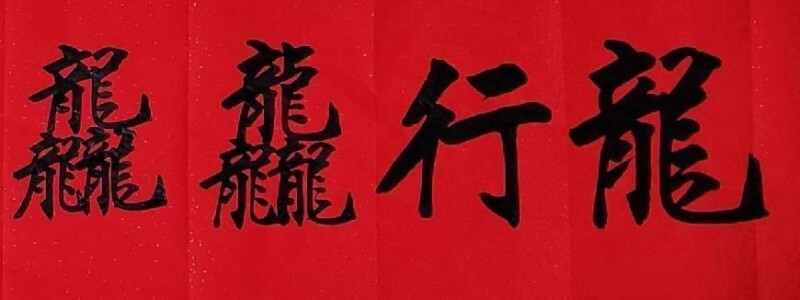 龍行龘龘